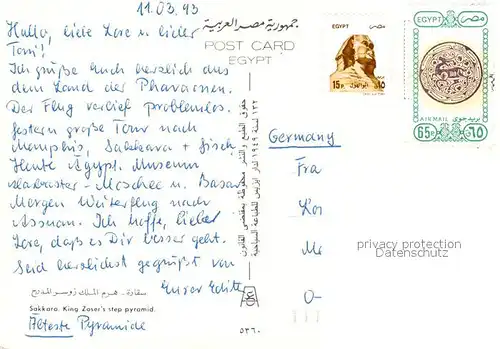 11.03.93
Hallo, liebe Lore u. lieber
Toni!
Ich grüße Euch herzlich aus
dem Land der Pharaonen.
Der Flug verlief problemlos.
Gestern große Tour nach
Memphis, Sakkara + Giseh
Heute Ägypt. Museum
Alabaster-Moschee u. Basar
Morgen Weiterflug nach
Assuan. Ich hoffe, lieber
Lore, daß es Dir besser geht.
Seid herzlichst gegrüßt von
Eurer Editte
سقارة - هرم الملك زوسر المدرج
Sakkara. King Zoser's step pyramid.
Älteste Pyramide
جمهورية مصر العربية
POST CARD
EGYPT
حقوق الطبع والنشر محفوظة بمقتضى القانون
٥٣٦٠
EGYPT مصر
15P ١٥
EGYPT مصر
AIR MAIL بريد جوى
65P ٦٥
Germany
Fra
Lor
Me
0-
privacy protection
Datenschutz